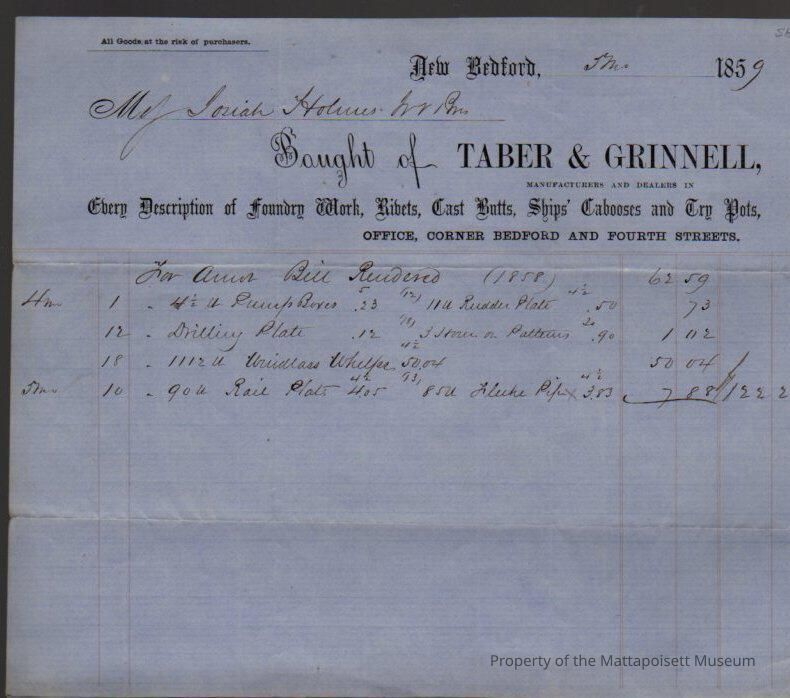 All Goods at the risk of purchasers.
New Bedford, 5 Mo. 1859
Mess Josiah Holmes Jr & Bro
Bought of TABER & GRINNELL,
MANUFACTURERS AND DEALERS IN
Every Description of Foundry Work, Rivets, Cast Butts, Ships' Cabooses and Try Pots,
OFFICE, CORNER BEDFORD AND FOURTH STREETS.
For Amot Bill Rendered (1858) 62 59
4 mo 1 " 4½ lb Pump Boxes 5 .23 (12) 11 lb Rudder Plate 4½ .50 73
12 " Drilling Plate .12 3 Hours on Patterns .90 1 02
18 " 1112 lb Windlass Whelps 4½ 50,04 50 04
5 mo 10 " 90 lb Rail Plate 4½ 4.05 (93) 85 lb Pipe 4½ 3.83 7 88 122 2
Property of the Mattapoisett Museum